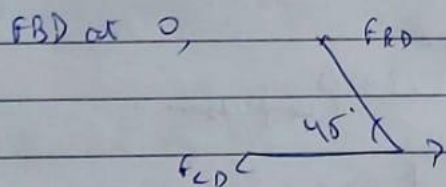 FBD at D,
F_BD
45°
F_CD